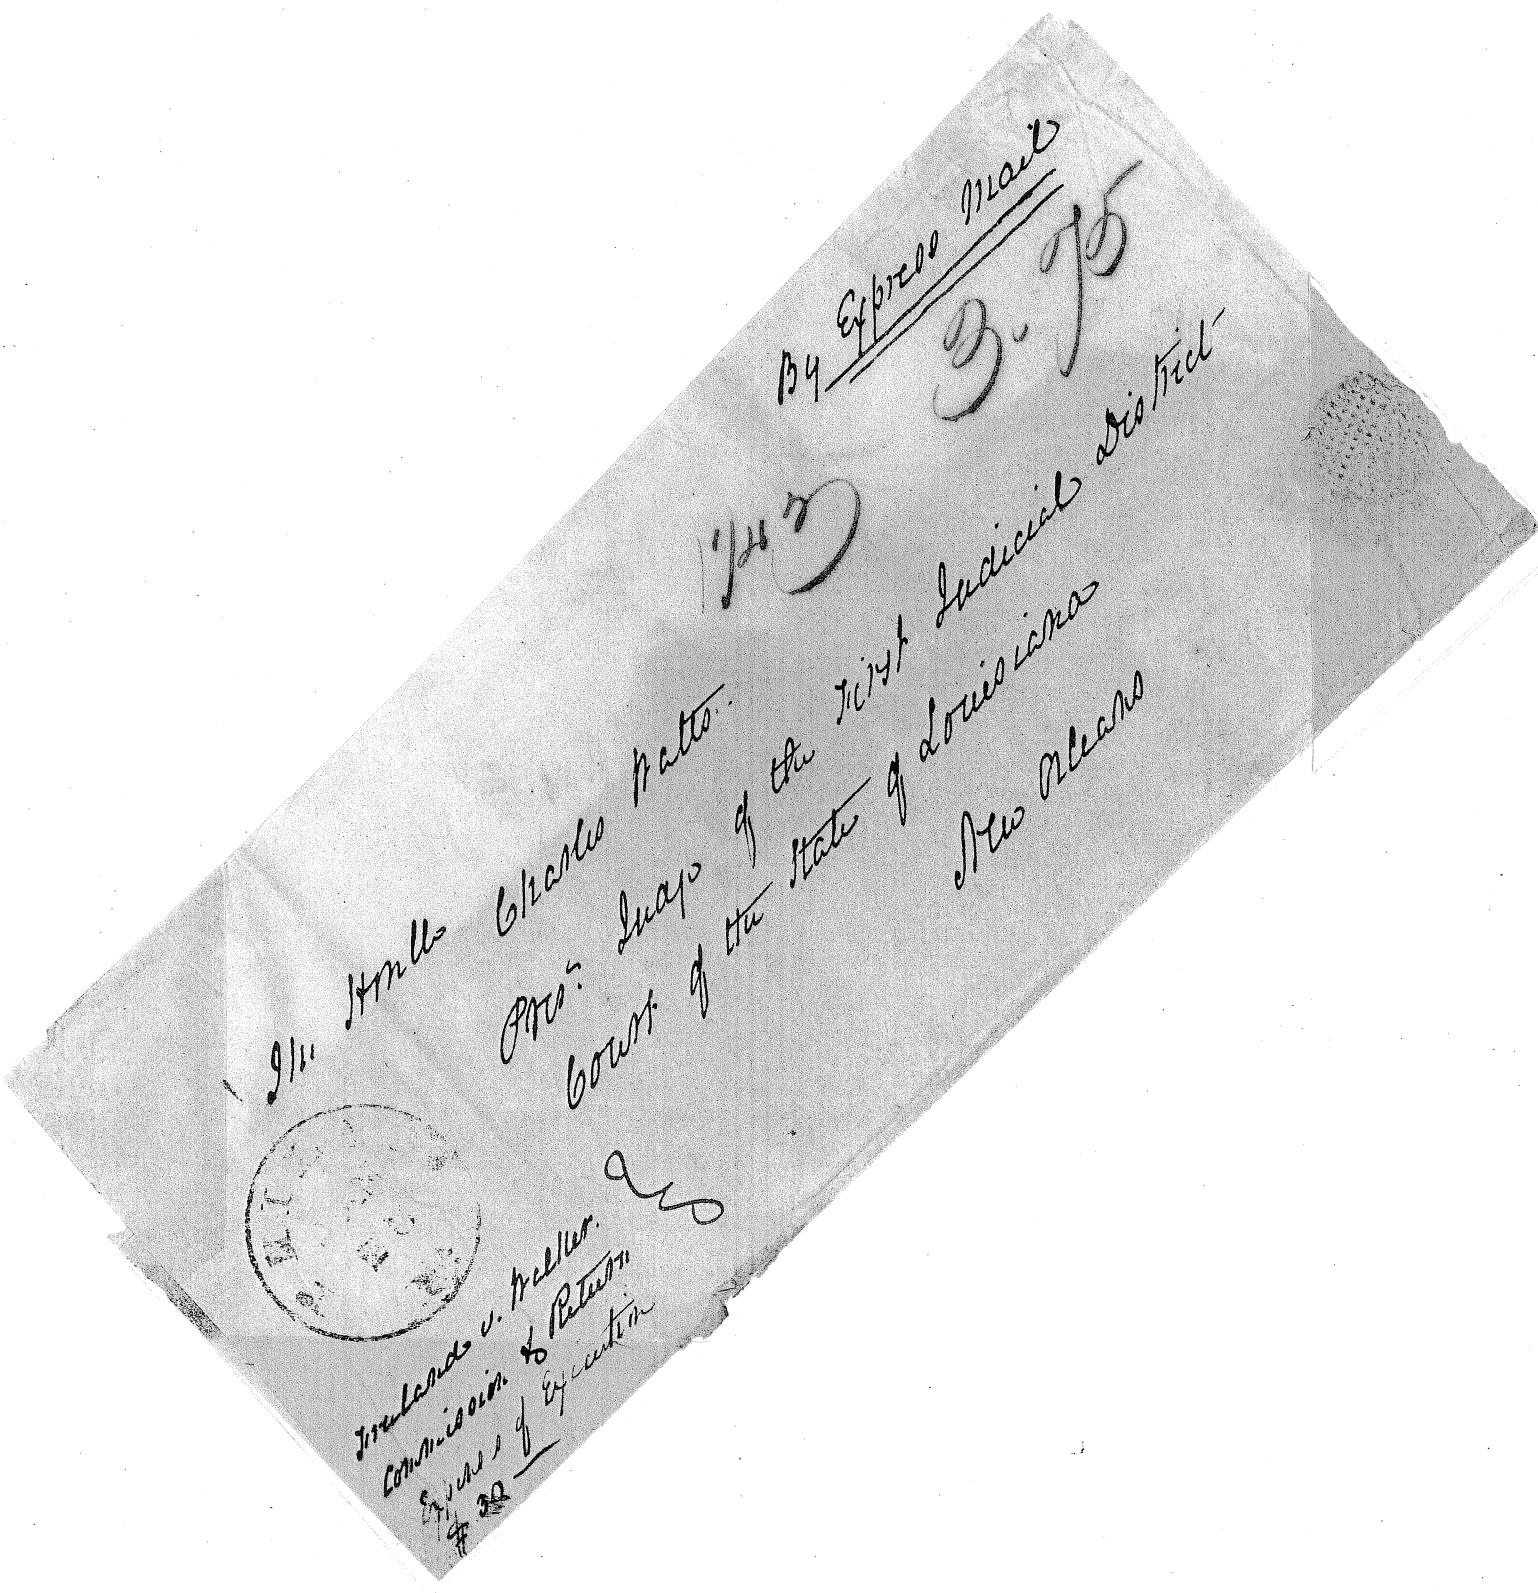 By Express Mail
3.75
The Honble Charles Watts.
Presg Judge of the First Judicial District
Court of the State of Louisiana
New Orleans
v. Walker.
Commission & Return
Expenses of Execution
$ 30